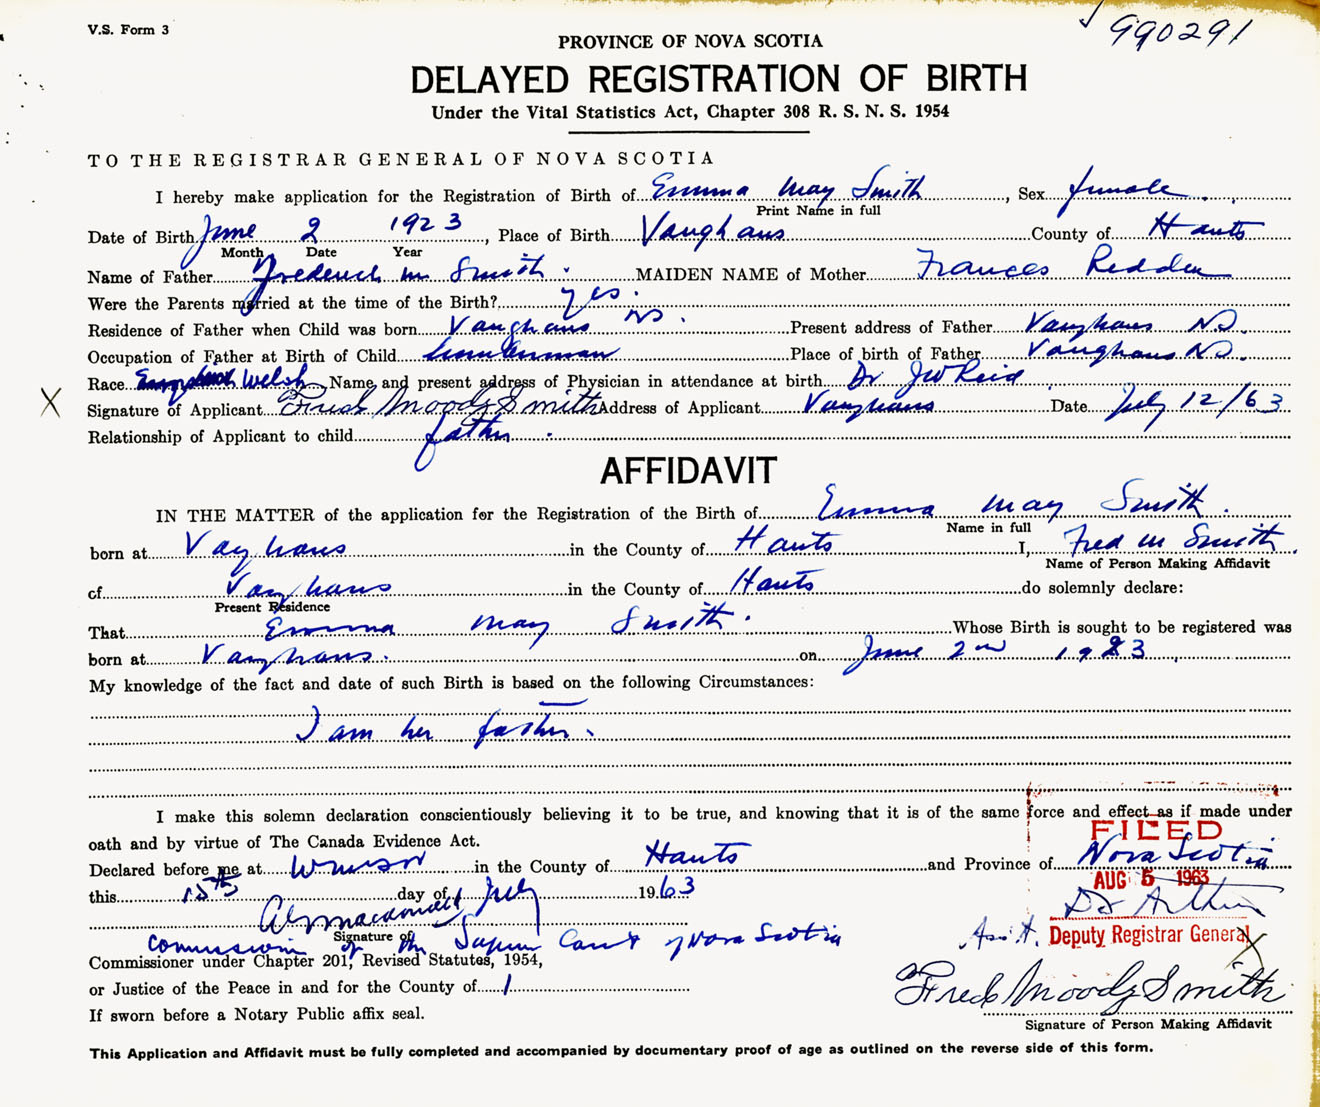 V.S. Form 3
990291
PROVINCE OF NOVA SCOTIA
DELAYED REGISTRATION OF BIRTH
Under the Vital Statistics Act, Chapter 308 R. S. N. S. 1954
TO THE REGISTRAR GENERAL OF NOVA SCOTIA
I hereby make application for the Registration of Birth of Emma May Smith, Sex female
Print Name in full
Date of Birth June 2 1923, Place of Birth Vaughans County of Hants
Month Date Year
Name of Father Frederick M Smith MAIDEN NAME of Mother Frances Redden
Were the Parents married at the time of the Birth? yes.
Residence of Father when Child was born Vaughans NS. Present address of Father Vaughans NS.
Occupation of Father at Birth of Child Lumberman Place of birth of Father Vaughans NS.
Race Welsh Name and present address of Physician in attendance at birth Dr JW Reid
Signature of Applicant Fred Moody Smith Address of Applicant Vaughans Date July 12/63
X
Relationship of Applicant to child father.
AFFIDAVIT
IN THE MATTER of the application for the Registration of the Birth of Emma May Smith.
Name in full
born at Vaughans in the County of Hants I, Fred M Smith
Name of Person Making Affidavit
of Vaughans in the County of Hants do solemnly declare:
Present Residence
That Emma May Smith. Whose Birth is sought to be registered was
born at Vaughans. on June 2nd 1923
My knowledge of the fact and date of such Birth is based on the following Circumstances:
I am her father.
I make this solemn declaration conscientiously believing it to be true, and knowing that it is of the same force and effect as if made under
oath and by virtue of The Canada Evidence Act.
FILED
Declared before me at Windsor in the County of Hants and Province of Nova Scotia
AUG 5 1963
this day of July 1963
Macdonald
Signature of
Asst. Deputy Registrar General
X
Commissioner of the Supreme Court of Nova Scotia
Commissioner under Chapter 201, Revised Statutes, 1954,
or Justice of the Peace in and for the County of
Fred Moody Smith
If sworn before a Notary Public affix seal.
Signature of Person Making Affidavit
This Application and Affidavit must be fully completed and accompanied by documentary proof of age as outlined on the reverse side of this form.